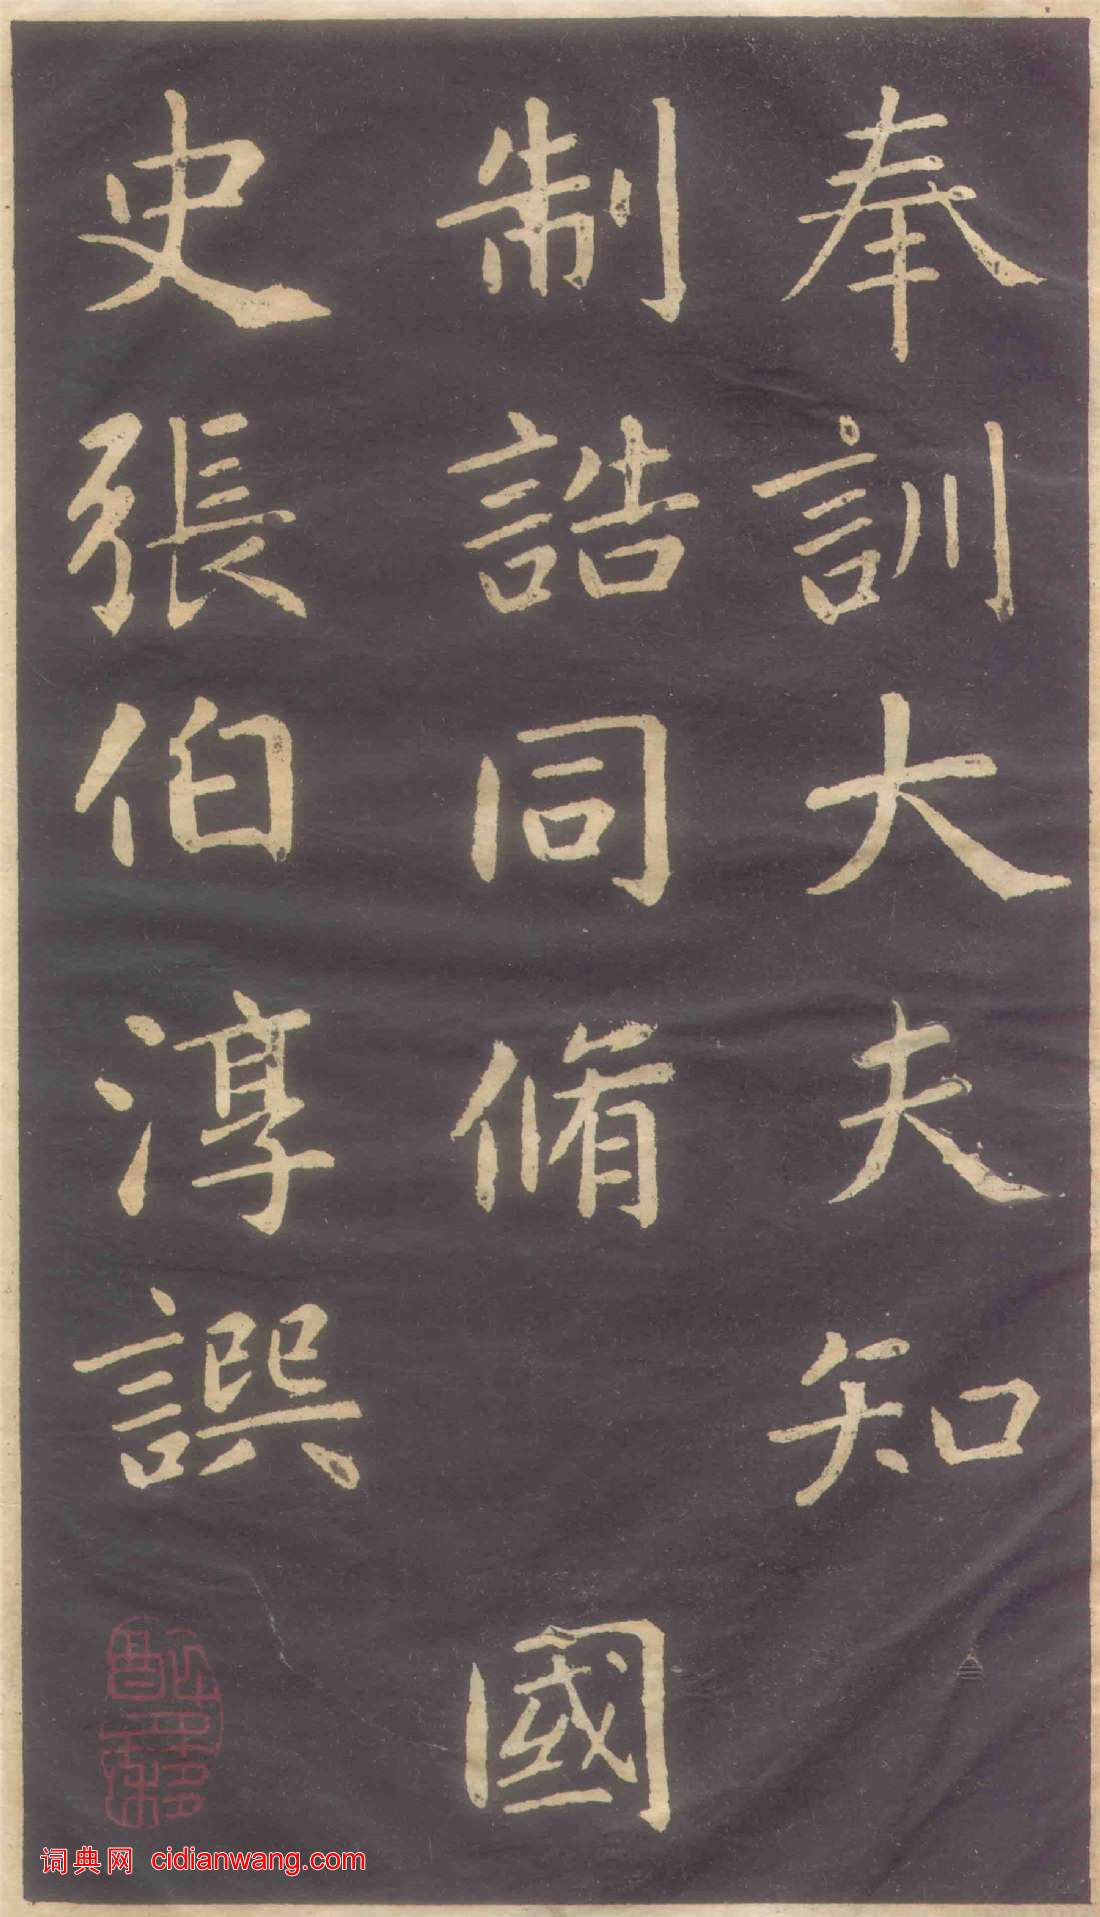 奉訓大夫知
制誥同脩 國
史張伯淳譔
词典网 cidianwang.com